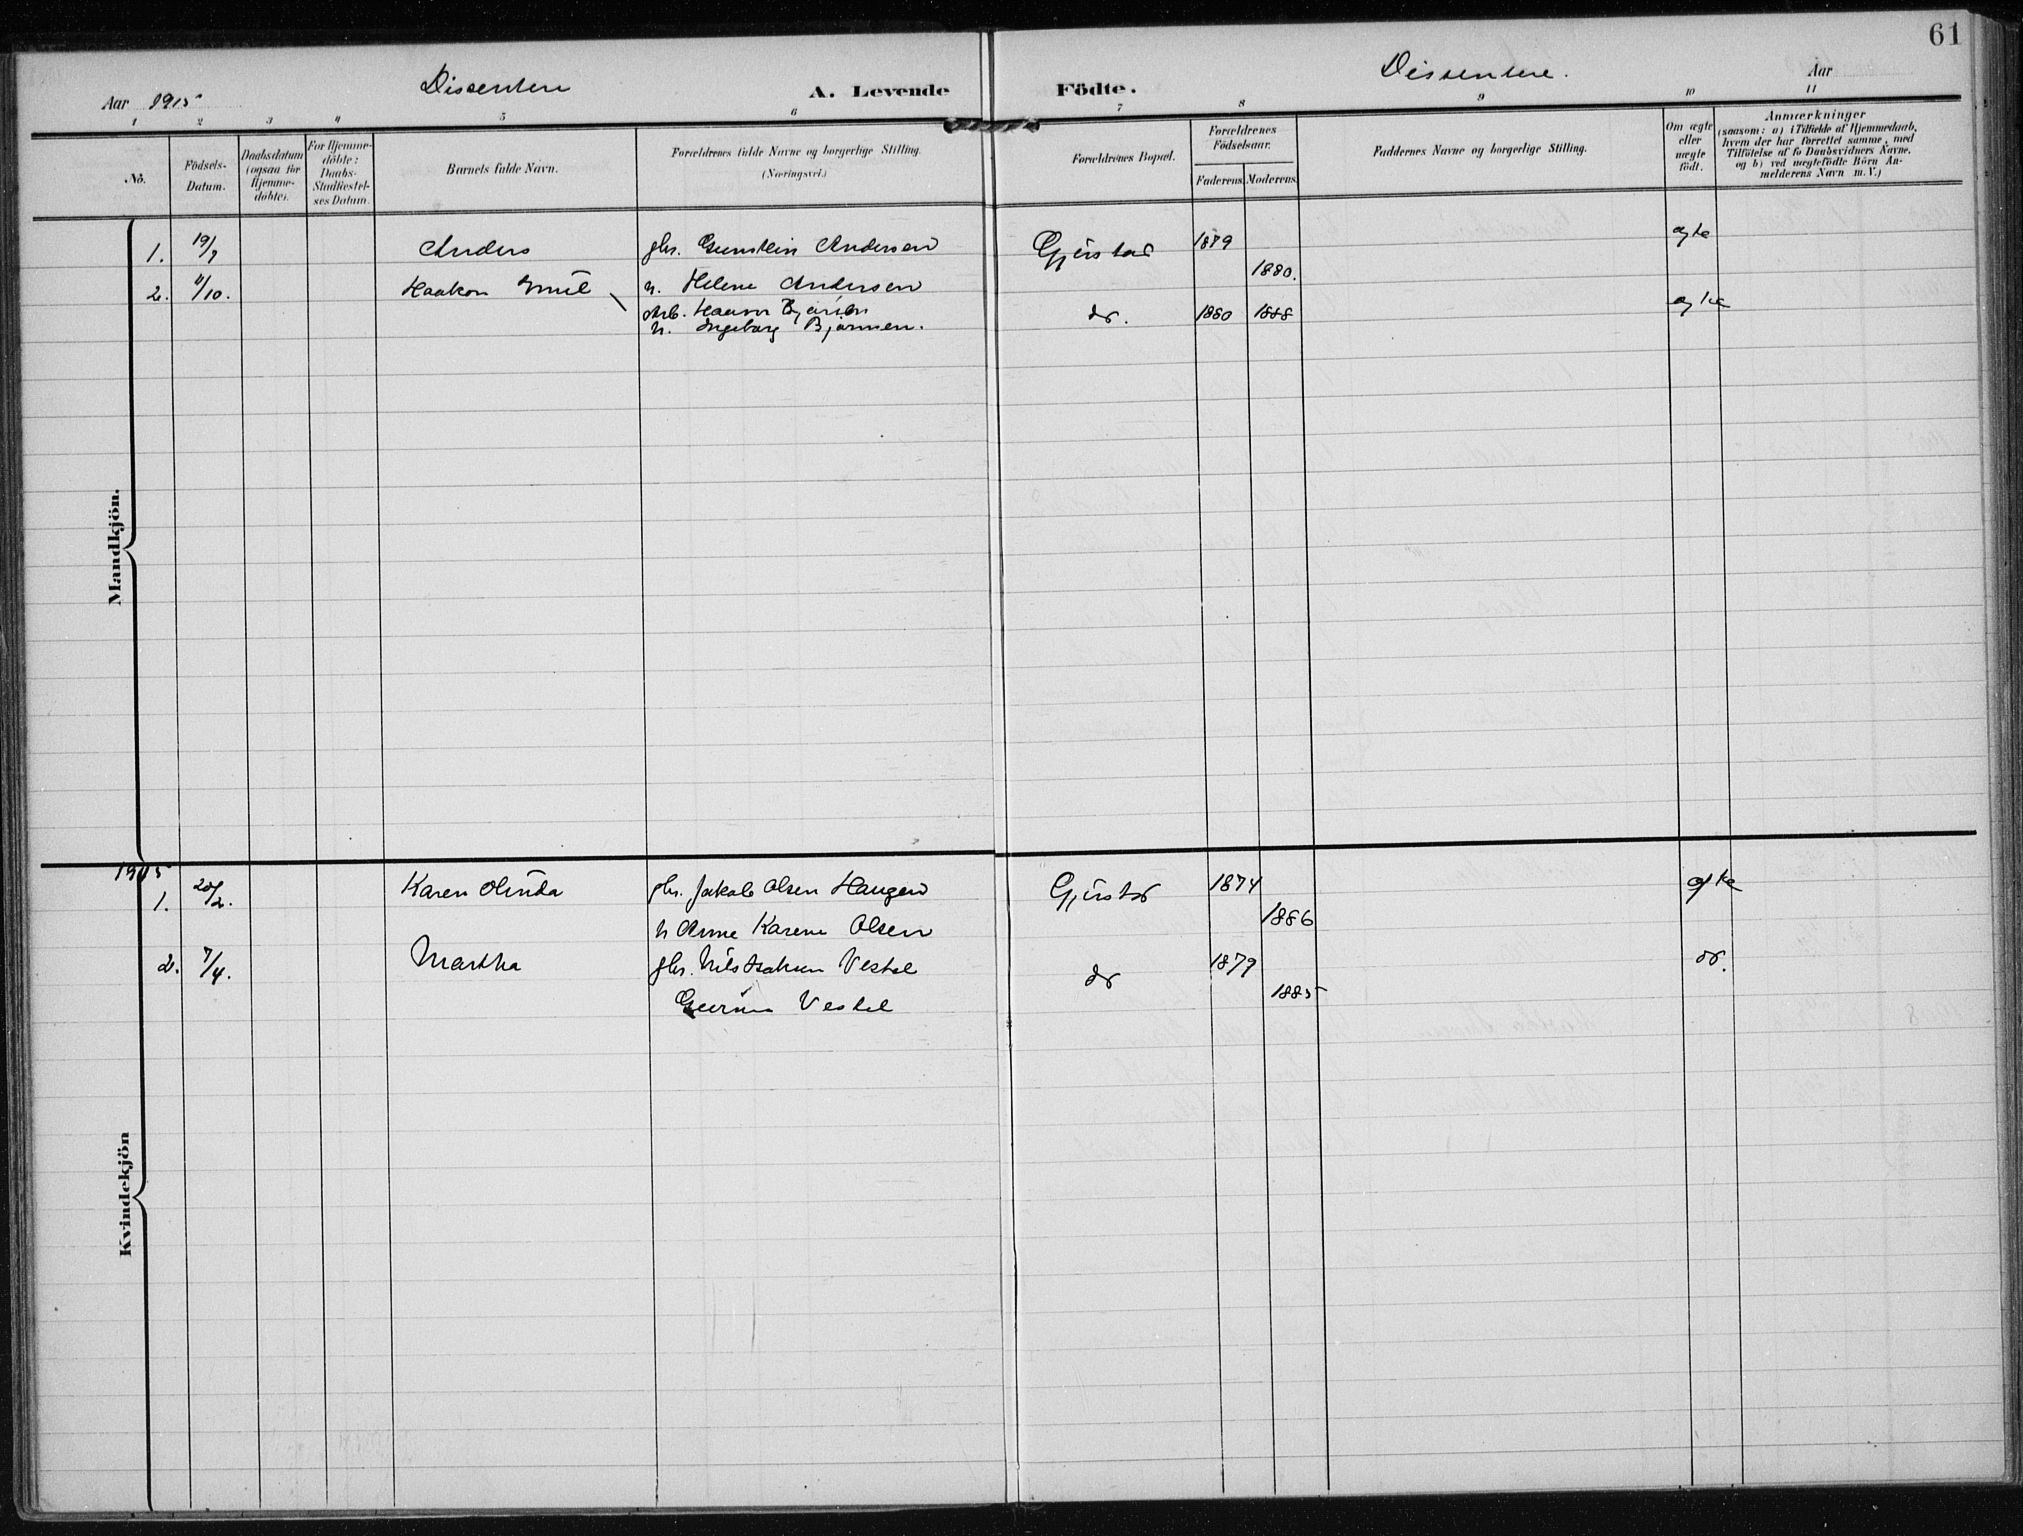 61
Dissentere
Dissentere.
Aar 1915
A. Levende
Födte.
Aar
1 2 3 4 5 6 7 8 9 10 11
No.
Födsels-
Datum.
Daabsdatum
(ogsaa for
Hjemme-
döbte).
For Hjemme-
döbte:
Daabs-
Stadfæstel-
ses Datum.
Barnets fulde Navn.
Forældrenes fulde Navne og borgerlige Stilling.
(Næringsvei.)
Forældrenes Bopæl.
Forældrenes
Födselsaar.
Faderens. Moderens.
Faddernes Navne og borgerlige Stilling.
Om ægte
eller
uægte
födt.
Anmærkninger
(saasom: a) i Tilfælde af Hjemmedaab,
hvem der har forrettet samme, med
Tilföielse af to Daabsvidners Navne,
og b) ved uægtefödte Börn An-
melderens Navn m. V.)
Mandkjön.
1. 19/9 Anders gbr. Gunstein Andersen Gjerstad 1879 ægte
1880.
2. 11/10. Haakon Emil h. Helene Andersen
Arb. Hanver Bjørnsen do. 1880 1888 ægte
h. Ingeborg Bjørnsen.
1915
Kvindekjön
1. 20/2. Karen Olinda gbr. Jakob Olsen Haugen Gjerstad 1874 ægte
h Anne Karene Olsen 1886
2. 7/4. Martha gbr. Nils Isaksen Vestøl do 1879 do.
Gurine Vestøl 1885